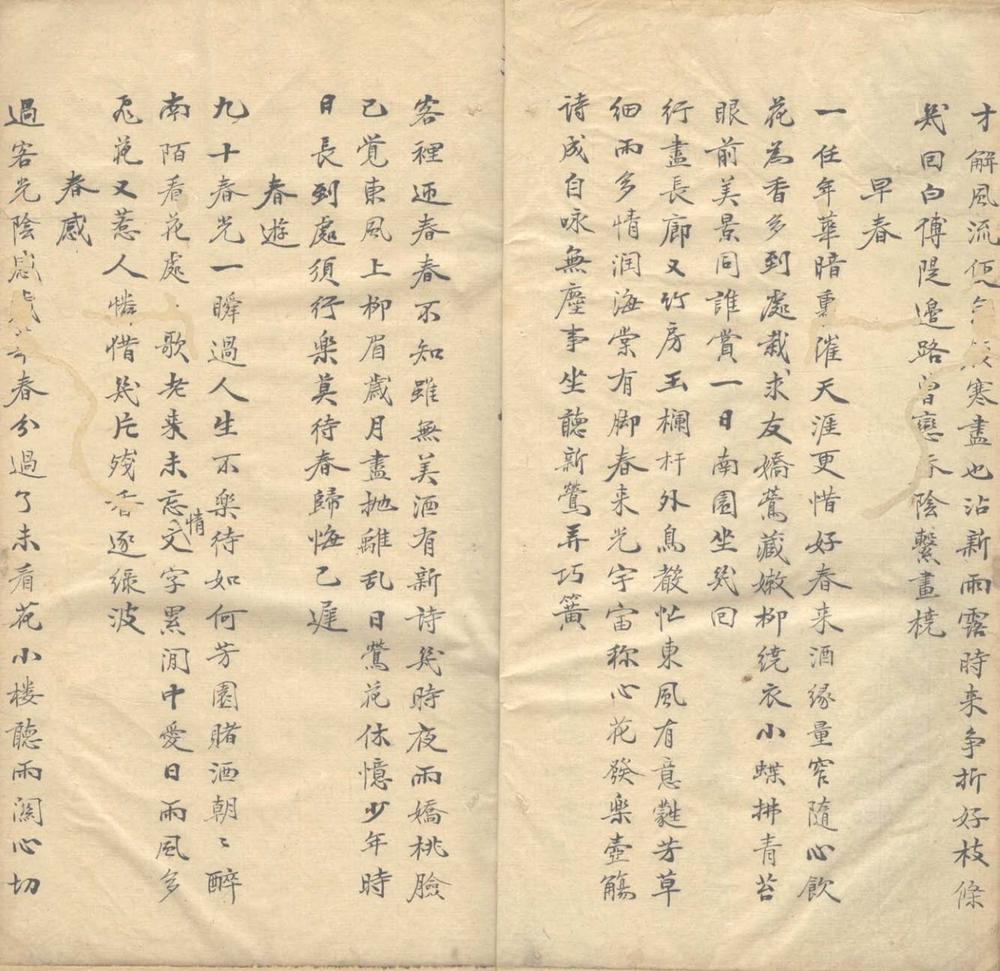 才解風流便寒盡也沾新雨露時来争折好枝條
幾回白傅隄邉路曾戀陰繫畫橈
早春
一任年華暗裏催天涯更惜好春来酒緣量窄隨心飲
花為香多到處栽求友嬌鶯藏嫩柳繞衣小蝶拂青苔
眼前美景同誰賞一日南園坐幾回
行盡長廊又竹房玉欄杆外鳥聲忙東風有意蘸芳草
細雨多情润海棠有脚春来光宇宙称心花發樂壺觴
诗成自咏無塵事坐聽新鶯弄巧簧
客裡迊春春不知雖無美酒有新诗幾時夜雨嬌桃臉
已覺東風上柳眉歲月盡抛離乱日鶯花休憶少年時
日長到處須行樂莫待春歸悔已遲
春遊
九十春光一瞬過人生不樂待如何芳園賭酒朝〻醉
南陌看花處〻歌老来未忘情文字累閒中愛日雨風多
飛花又惹人憐惜幾片殘香逐緑波
春感
過客光陰感春分過了未看花小楼聽雨関心切